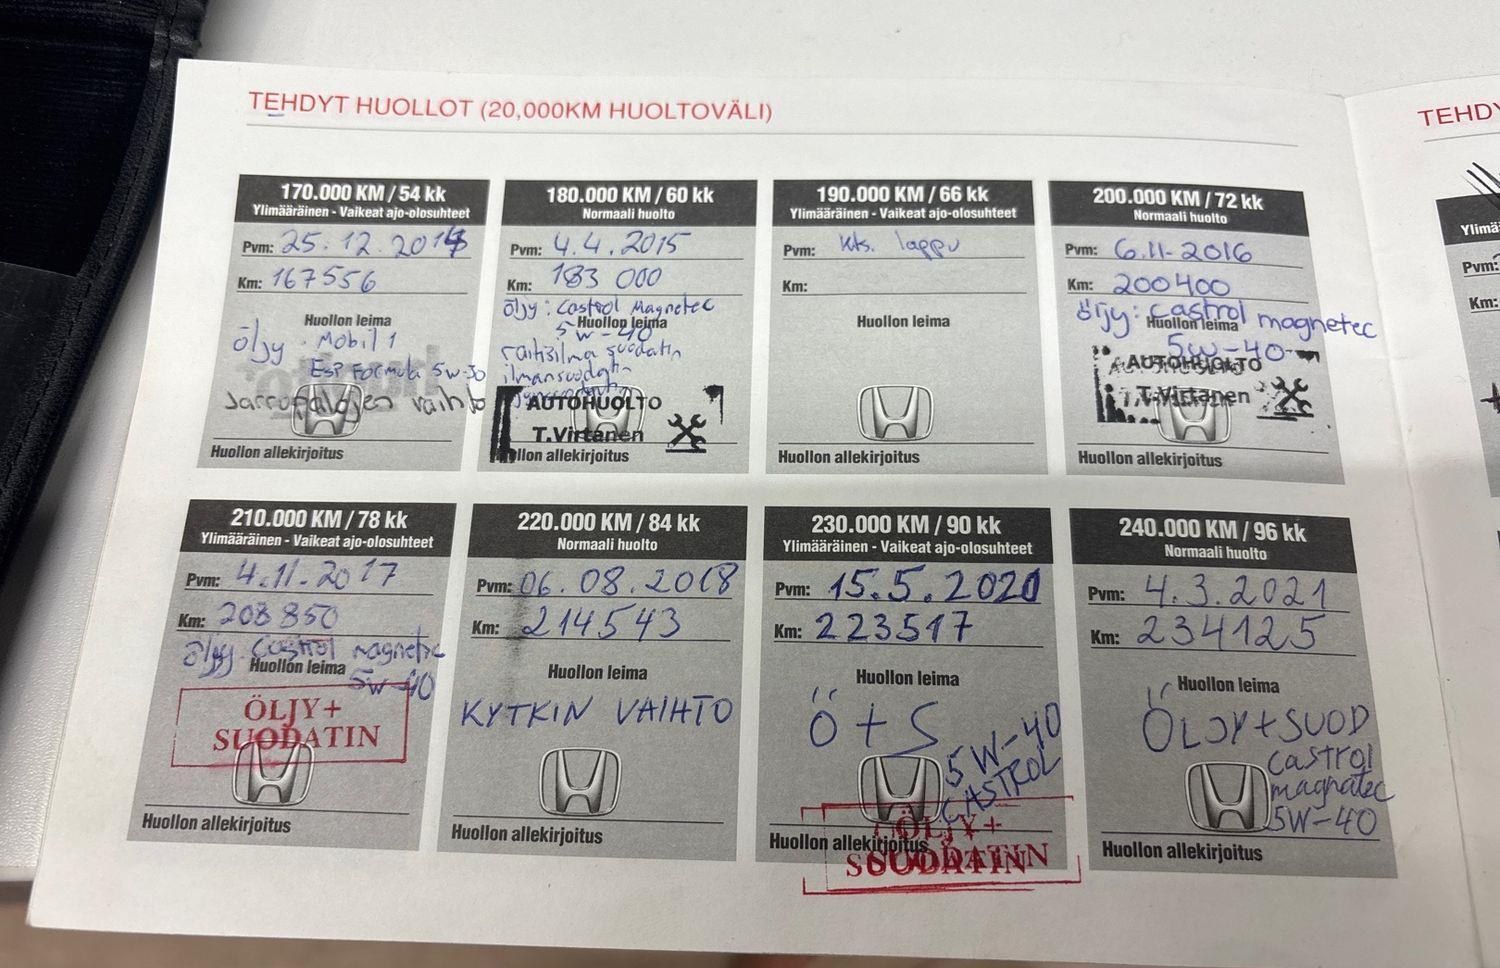 TEHDYT HUOLLOT (20,000KM HUOLTOVÄLI)
TEHDY
170.000 KM / 54 kk
Ylimääräinen - Vaikeat ajo-olosuhteet
Pvm: 25.12.2014
Km: 167556
Huollon leima
öljy . Mobil 1
ESP Formula 5w-30
Jarrupalojen vaihto
Huollon allekirjoitus
180.000 KM / 60 kk
Normaali huolto
Pvm: 4.4.2015
Km: 183 000
öljy: Castrol Magnetec
Huollon leima
5w-40
raitisilma suodatin
ilmansuodatin
AUTOHUOLTO
T.Virtanen
llon allekirjoitus
190.000 KM / 66 kk
Ylimääräinen - Vaikeat ajo-olosuhteet
Pvm: kts. lappu
Km:
Huollon leima
Huollon allekirjoitus
200.000 KM / 72 kk
Normaali huolto
Pvm: 6.11-2016
Km: 200400
öljy: Castrol magnetec
Huollon leima
5w-40
AUTOHUOLTO
T.Virtanen
Huollon allekirjoitus
Ylimä
Pvm:
Km:
210.000 KM / 78 kk
Ylimääräinen - Vaikeat ajo-olosuhteet
Pvm: 4.11.2017
Km: 208850
öljy Castrol magnetic
Huollon leima
5w-40
ÖLJY+
SUODATIN
Huollon allekirjoitus
220.000 KM / 84 kk
Normaali huolto
Pvm: 06.08.2018
Km: 214543
Huollon leima
KYTKIN VAIHTO
Huollon allekirjoitus
230.000 KM / 90 kk
Ylimääräinen - Vaikeat ajo-olosuhteet
Pvm: 15.5.2020
Km: 223517
Huollon leima
Ö + S
5W-40
CASTROL
ÖLJY+
Huollon allekirjoitus
SUODATIN
240.000 KM / 96 kk
Normaali huolto
Pvm: 4.3.2021
Km: 234125
Huollon leima
ÖLJY+SUOD
castrol
magnatec
5W-40
Huollon allekirjoitus